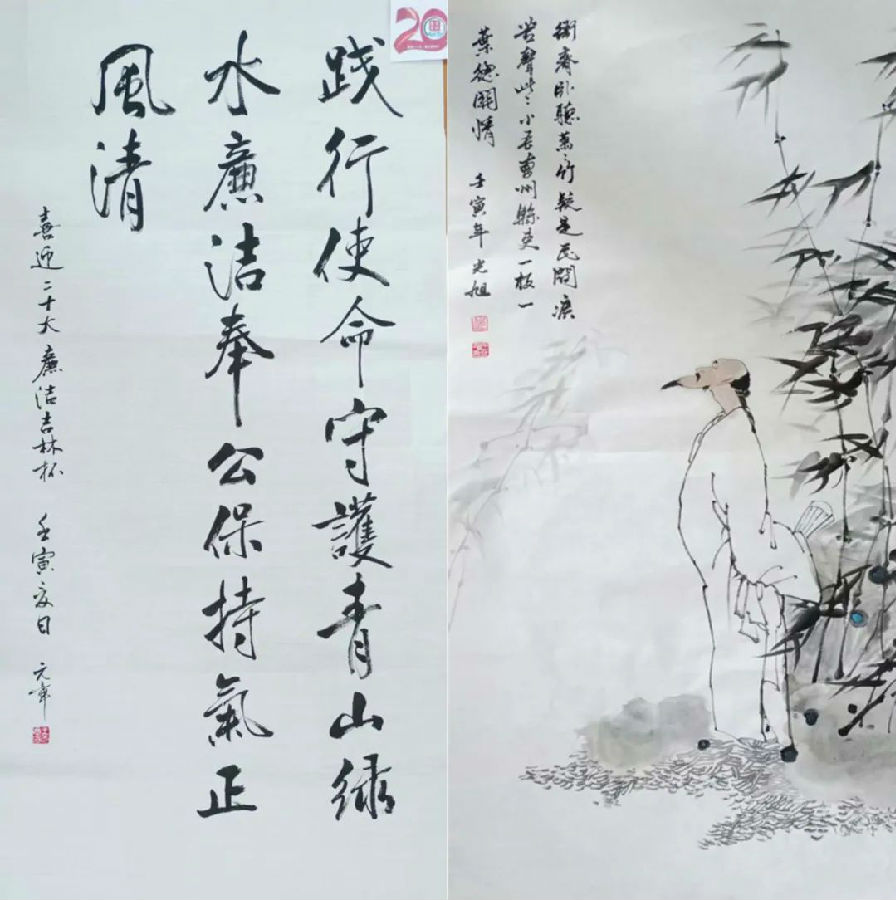 践行使命守護青山绿
水廉洁奉公保持氣正
風清
喜迎二十大 廉洁吉林杯 壬寅夏日 元军
20
衙斋卧聽萧竹疑是民間
苦聲些小吾曹州縣吏一枝一
葉總關情 壬寅年 光旭